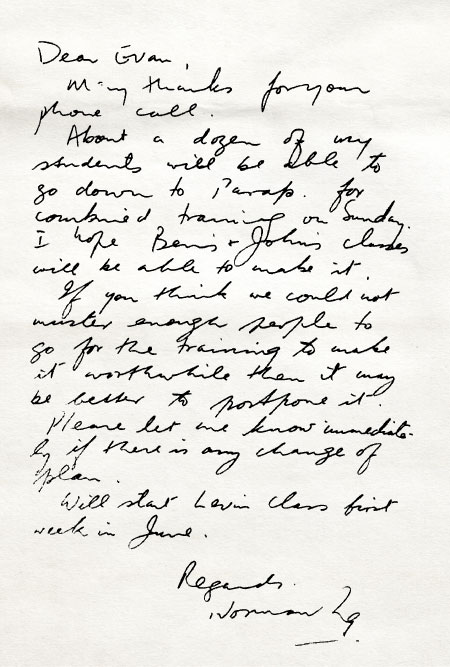 Dear Evan,
Many thanks for your
phone call.
About a dozen of my
students will be able to
go down to Parap. for
combined training on Sunday.
I hope Ben's + John's classes
will be able to make it.
If you think we could not
muster enough people to
go for the training to make
it worthwhile then it may
be better to postpone it.
Please let me know immediate-
ly if there is any change of
plan.
Will start Levin class first
week in June.
Regards.
Norman Ng.